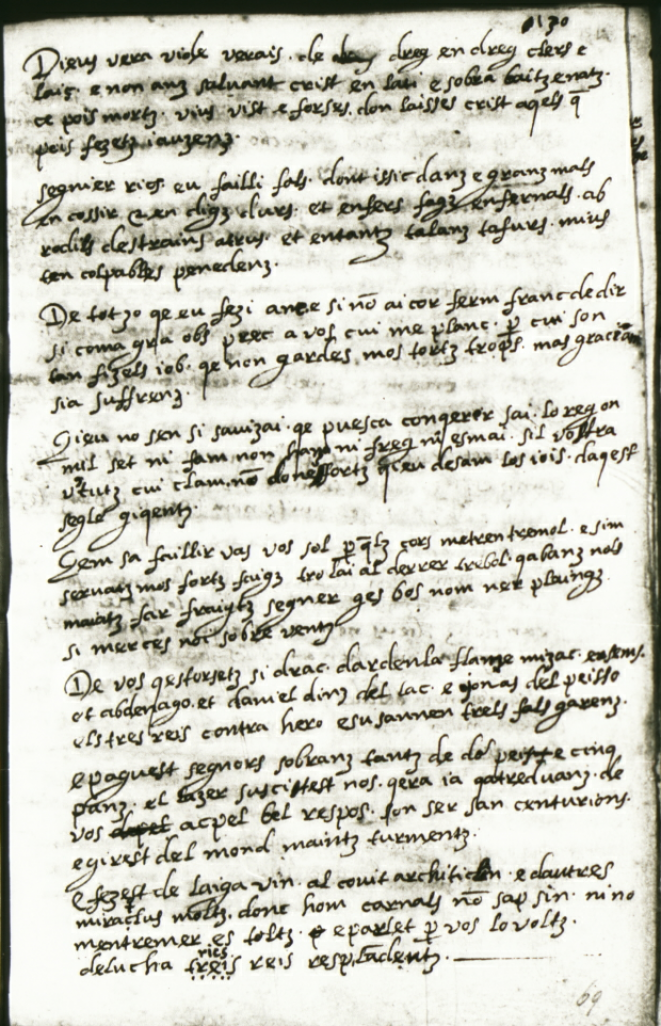 Dieus vera vide verais. de dreg en dreg clers e
laic. e non anz salvant crist en lati e sobra baitzenatz.
ce pois mortz. vius vist e forses. don laisses crist aqels q̄
peis fezetz iauzenz.
segnier rics. eu failli fols. dont issic danz e granz mals
en cossir et en digz durs. et enfers fagz enfernals. ab
rodils destrains atrus. et entantz talanz tafurs. mius
ren colpables penedenz.
De tot zo qe eu fezi anc e si nō ai cor ferm franc de dir
si coma gra obs prec a vos cui me planc. p̄ cui son
tan fizels iob. qe non gardes mos tortz trops. mas gracia
sia suffrenz.
Qieu no sen si sauizai. qe puesca conqerer sai. lo reg on
nuil set ni fam non ni freg ni esmai. sil vostra
vertutz cui clam. nō dones fortz qieu desam los iois. daqest
segle giqentz.
Qem sa faillir vas vos sol p̄ q̄lz cors metren tremol. e sim
servatz mos fortz faigz tro lai al derrer trebol. qabanz nols
maiatz far fraigtz segner ges bos nom ner plaingz
si merces noi sobre ventz
De vos qestorsetz sidrac. dardenla flame mizac. ensems.
et abdenago. et daniel dinz del lac. e jonas del peisso
els tres reis contra hero e susannen trels fals garenz.
e paguest segnors sobranz tantz de do peis e cinq
panz. el lazer suscitest vos. qera ia qatreduanz. de
vos acpel bel respos. son ser san centurions.
e girest del mond maintz turmentz.
E fezest de laiga vin. al covit architiclin. e dautres
miraclus moltz. donc hom carnals nō sap sin. ni no
mentremer es toltz. e parlet p̄ vos lo voltz.
rics
delucha treis reis resplādentz.
69